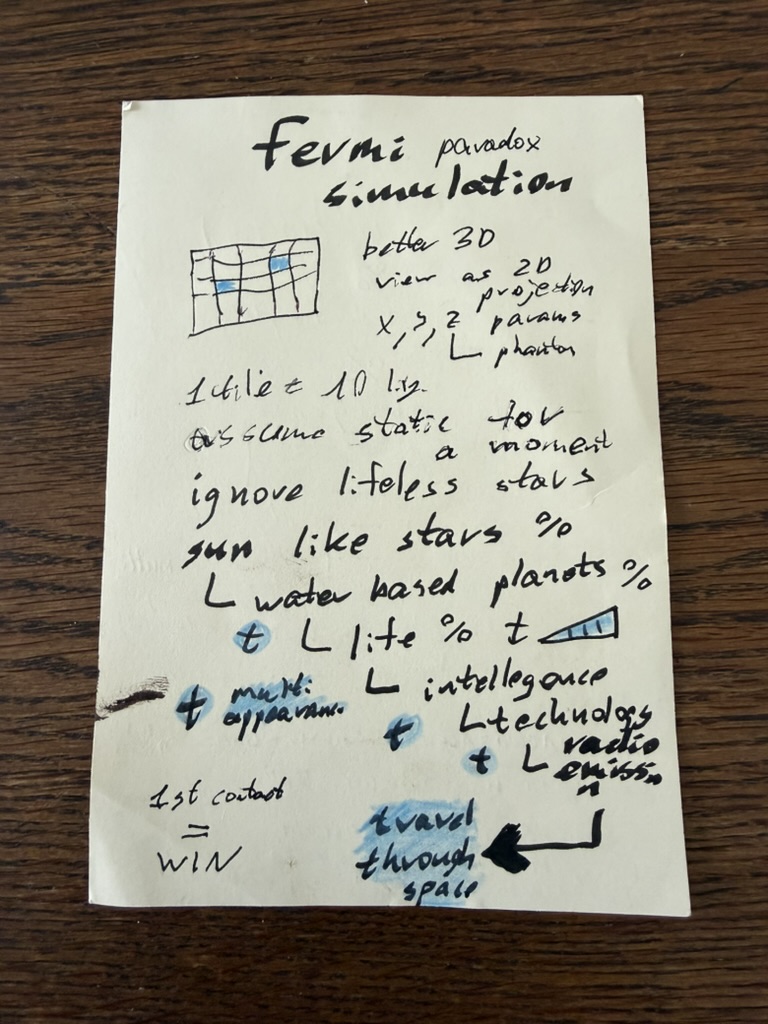 fermi paradox
simulation
better 3D
view as 2D
projection
x, y, z params
phantom
1 tile = 10 l.y.
assume static for
a moment
ignore lifeless stars
sun like stars %
water based planets %
t life % t
t multi
appearance
intellegence
t technology
t radio
emission
1st contact
=
WIN
travel
through
space